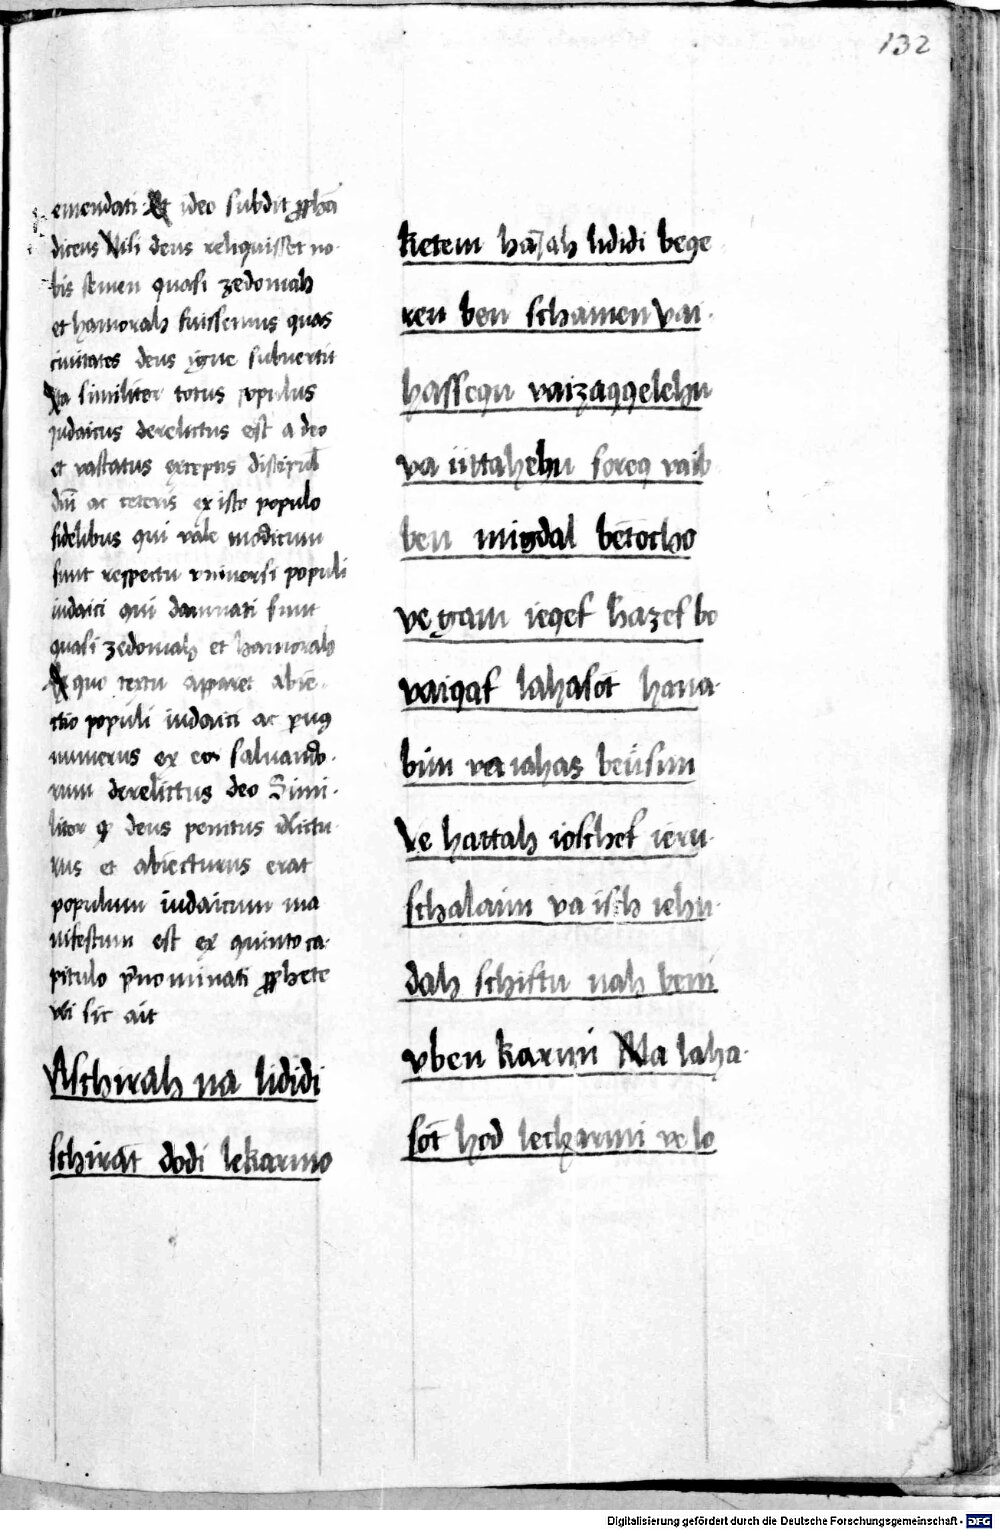 132
emendati Et ideo subdit ꝓpha
dicens Nisi deus reliquisset no-
bis semen quasi zedomah
et hamorah fuissemus quas
ciuitates deus igne subuertit
Ita similiter totus populus
judaicus derelictus est a deo
et vastatus exceptis discipul̄
dn̄i ac ceteris ex isto populo
fidelibus qui vale modicum
sunt respectu vniuersi populi
iudaici qui damnati sunt
quasi zedomah et hamorah
Ex quo textu apparet abie-
ctio populi iudaici ac puus
numerus ex eo saluando-
rum derelictus deo Simi-
liter ꝙ deus penitus
rus et abiecturus erat
populum iudaicum ma
nifestum est ex quinto ca-
pitulo p̄nominati ꝓphete
vbi sic ait
Aschirah na lididi
schirat dodi lekarmo
ketem haiah lididi beqe
ren ben schamen Vai-
hassequ vaizaqqelehu
va iittahehu soreq vaib
ben migdal betocho
ve gam ieqef hazef bo
vaiqaf lahasot hana-
bim vaiahas beusim
Ve hattah ioschef ieru-
schalaim va isch iehu-
dah schiftu nah beni
vben karmi Ma laha-
sot hod lecharmi velo
Digitalisierung gefördert durch die Deutsche Forschungsgemeinschaft - DFG